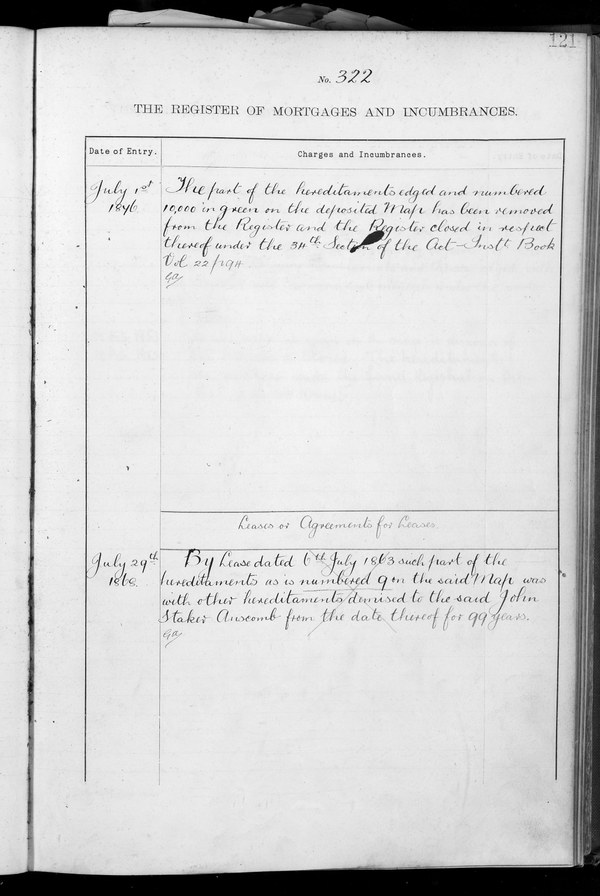 121
No. 322
THE REGISTER OF MORTGAGES AND INCUMBRANCES.
Date of Entry.
Charges and Incumbrances.
July 1st
1896
The part of the hereditaments edged and numbered
10,000 in green on the deposited Map has been removed
from the Register and the Register closed in respect
thereof under the 34th Section of the Act Instt Book
Vol 22/194
Leases or Agreements for Leases.
July 29th
1868
By Lease dated 6th July 1863 such part of the
hereditaments as is numbered 9 on the said Map was
with other hereditaments demised to the said John
Staker Anscomb from the date thereof for 99 years.